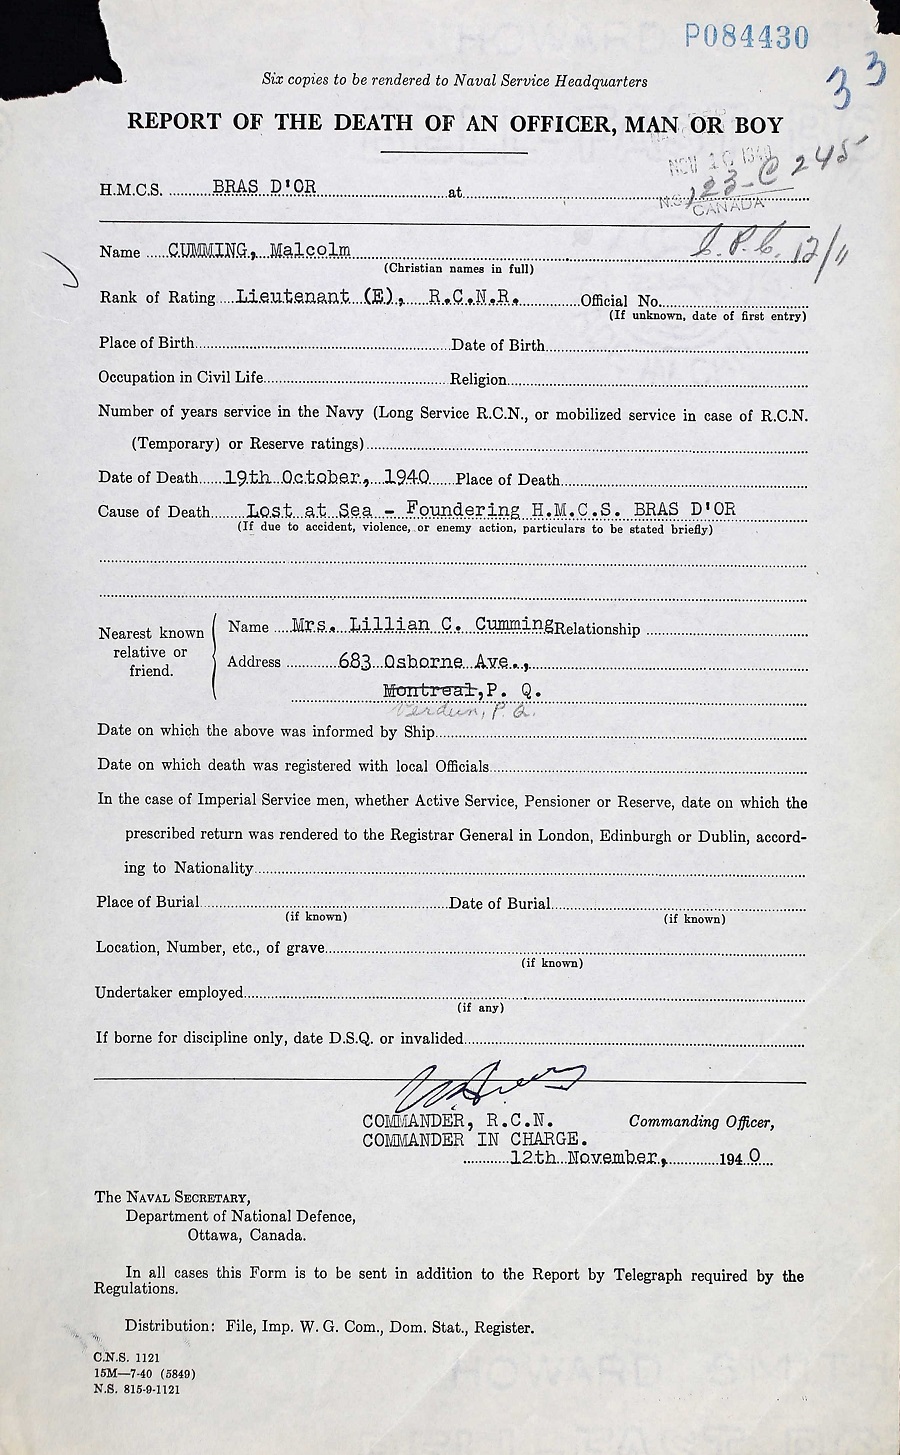 P084430
33
Six copies to be rendered to Naval Service Headquarters
REPORT OF THE DEATH OF AN OFFICER, MAN OR BOY
NOV 1940
N.S. 123-C 245
CANADA
H.M.C.S. BRAS D'OR at
12/11
Name CUMMING, Malcolm
(Christian names in full)
Rank of Rating Lieutenant (E), R.C.N.R. Official No.
(If unknown, date of first entry)
Place of Birth Date of Birth
Occupation in Civil Life Religion
Number of years service in the Navy (Long Service R.C.N., or mobilized service in case of R.C.N.
(Temporary) or Reserve ratings)
Date of Death 19th October, 1940 Place of Death
Cause of Death Lost at Sea - Foundering H.M.C.S. BRAS D'OR
(If due to accident, violence, or enemy action, particulars to be stated briefly)
Nearest known relative or friend.
Name Mrs. Lillian C. Cumming Relationship
Address 683 Osborne Ave.,
Montreal, P. Q.
Verdun, P.Q.
Date on which the above was informed by Ship
Date on which death was registered with local Officials
In the case of Imperial Service men, whether Active Service, Pensioner or Reserve, date on which the
prescribed return was rendered to the Registrar General in London, Edinburgh or Dublin, accord-
ing to Nationality
Place of Burial Date of Burial
(if known) (if known)
Location, Number, etc., of grave
(if known)
Undertaker employed
(if any)
If borne for discipline only, date D.S.Q. or invalided
COMMANDER, R.C.N. Commanding Officer,
COMMANDER IN CHARGE.
12th November, 1940
The NAVAL SECRETARY,
Department of National Defence,
Ottawa, Canada.
In all cases this Form is to be sent in addition to the Report by Telegraph required by the
Regulations.
Distribution: File, Imp. W. G. Com., Dom. Stat., Register.
C.N.S. 1121
15M—7-40 (5849)
N.S. 815-9-1121